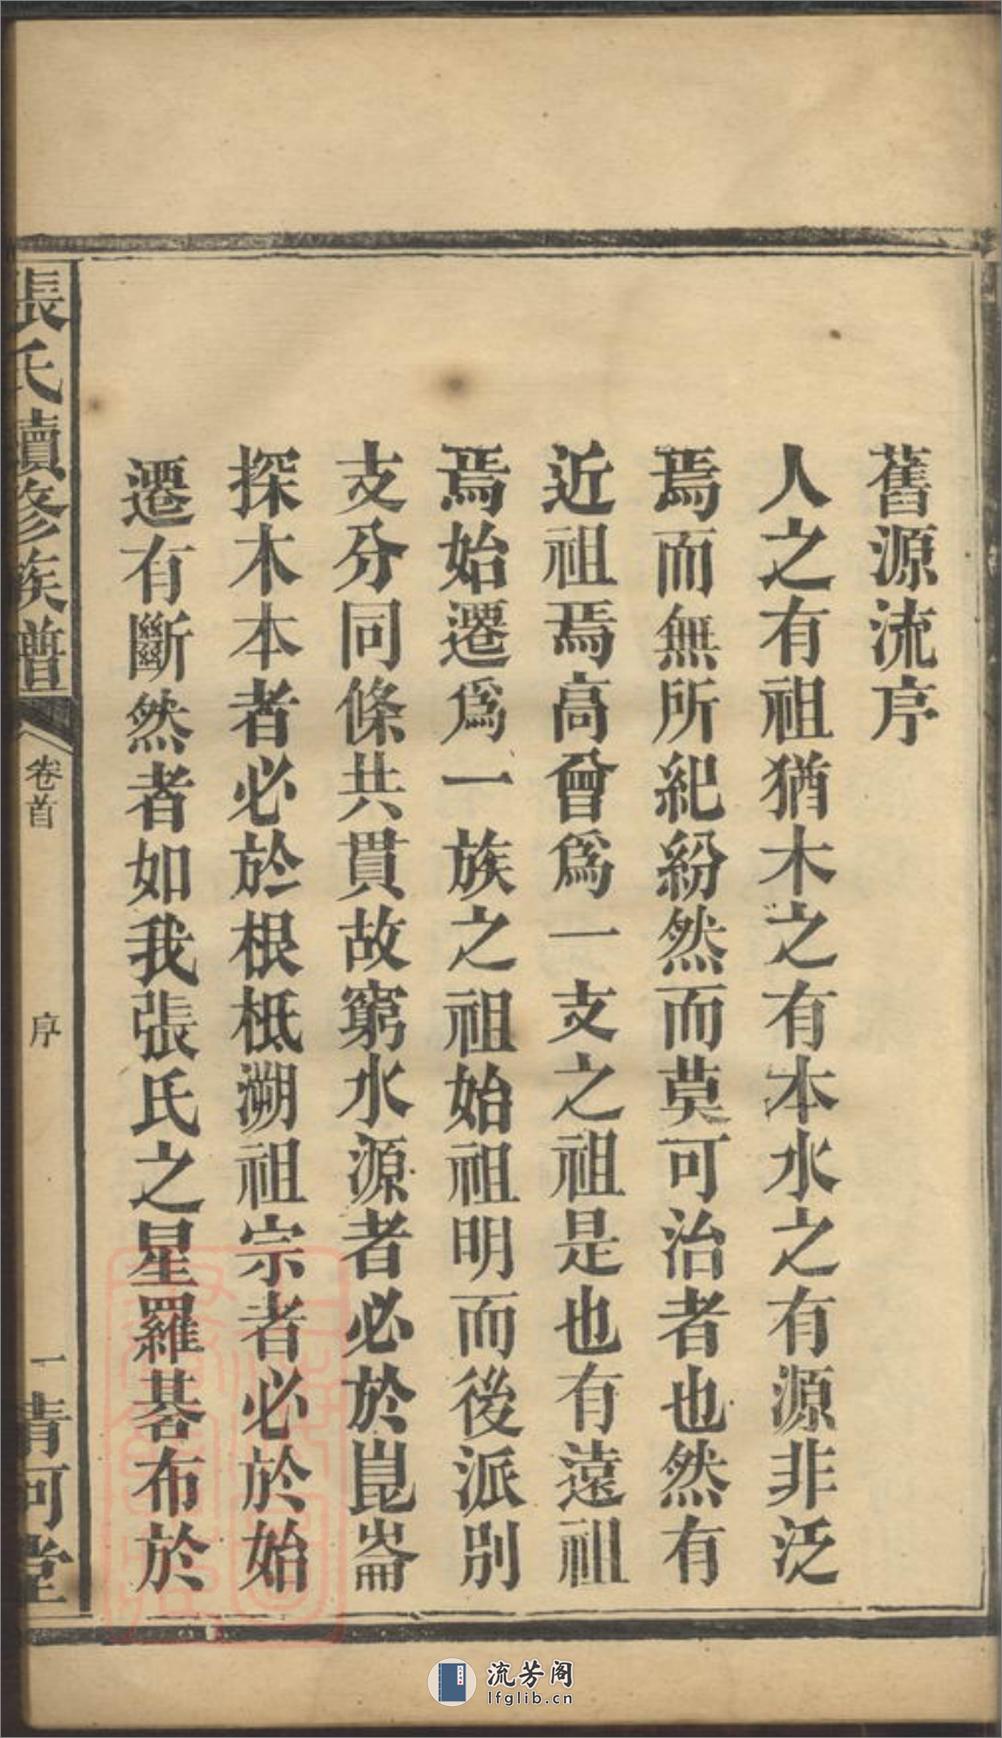 舊源流序
人之有祖猶木之有本水之有源非泛
焉而無所紀紛然而莫可治者也然有
近祖焉高曾爲一支之祖是也有遠祖
焉始遷爲一族之祖始祖明而後派別
支分同條共貫故窮水源者必於崑崙
探木本者必於根柢溯祖宗者必於始
遷有斷然者如我張氏之星羅碁布於
張氏續修族譜
卷首
序
一
清河堂
流芳阁
lfglib.cn